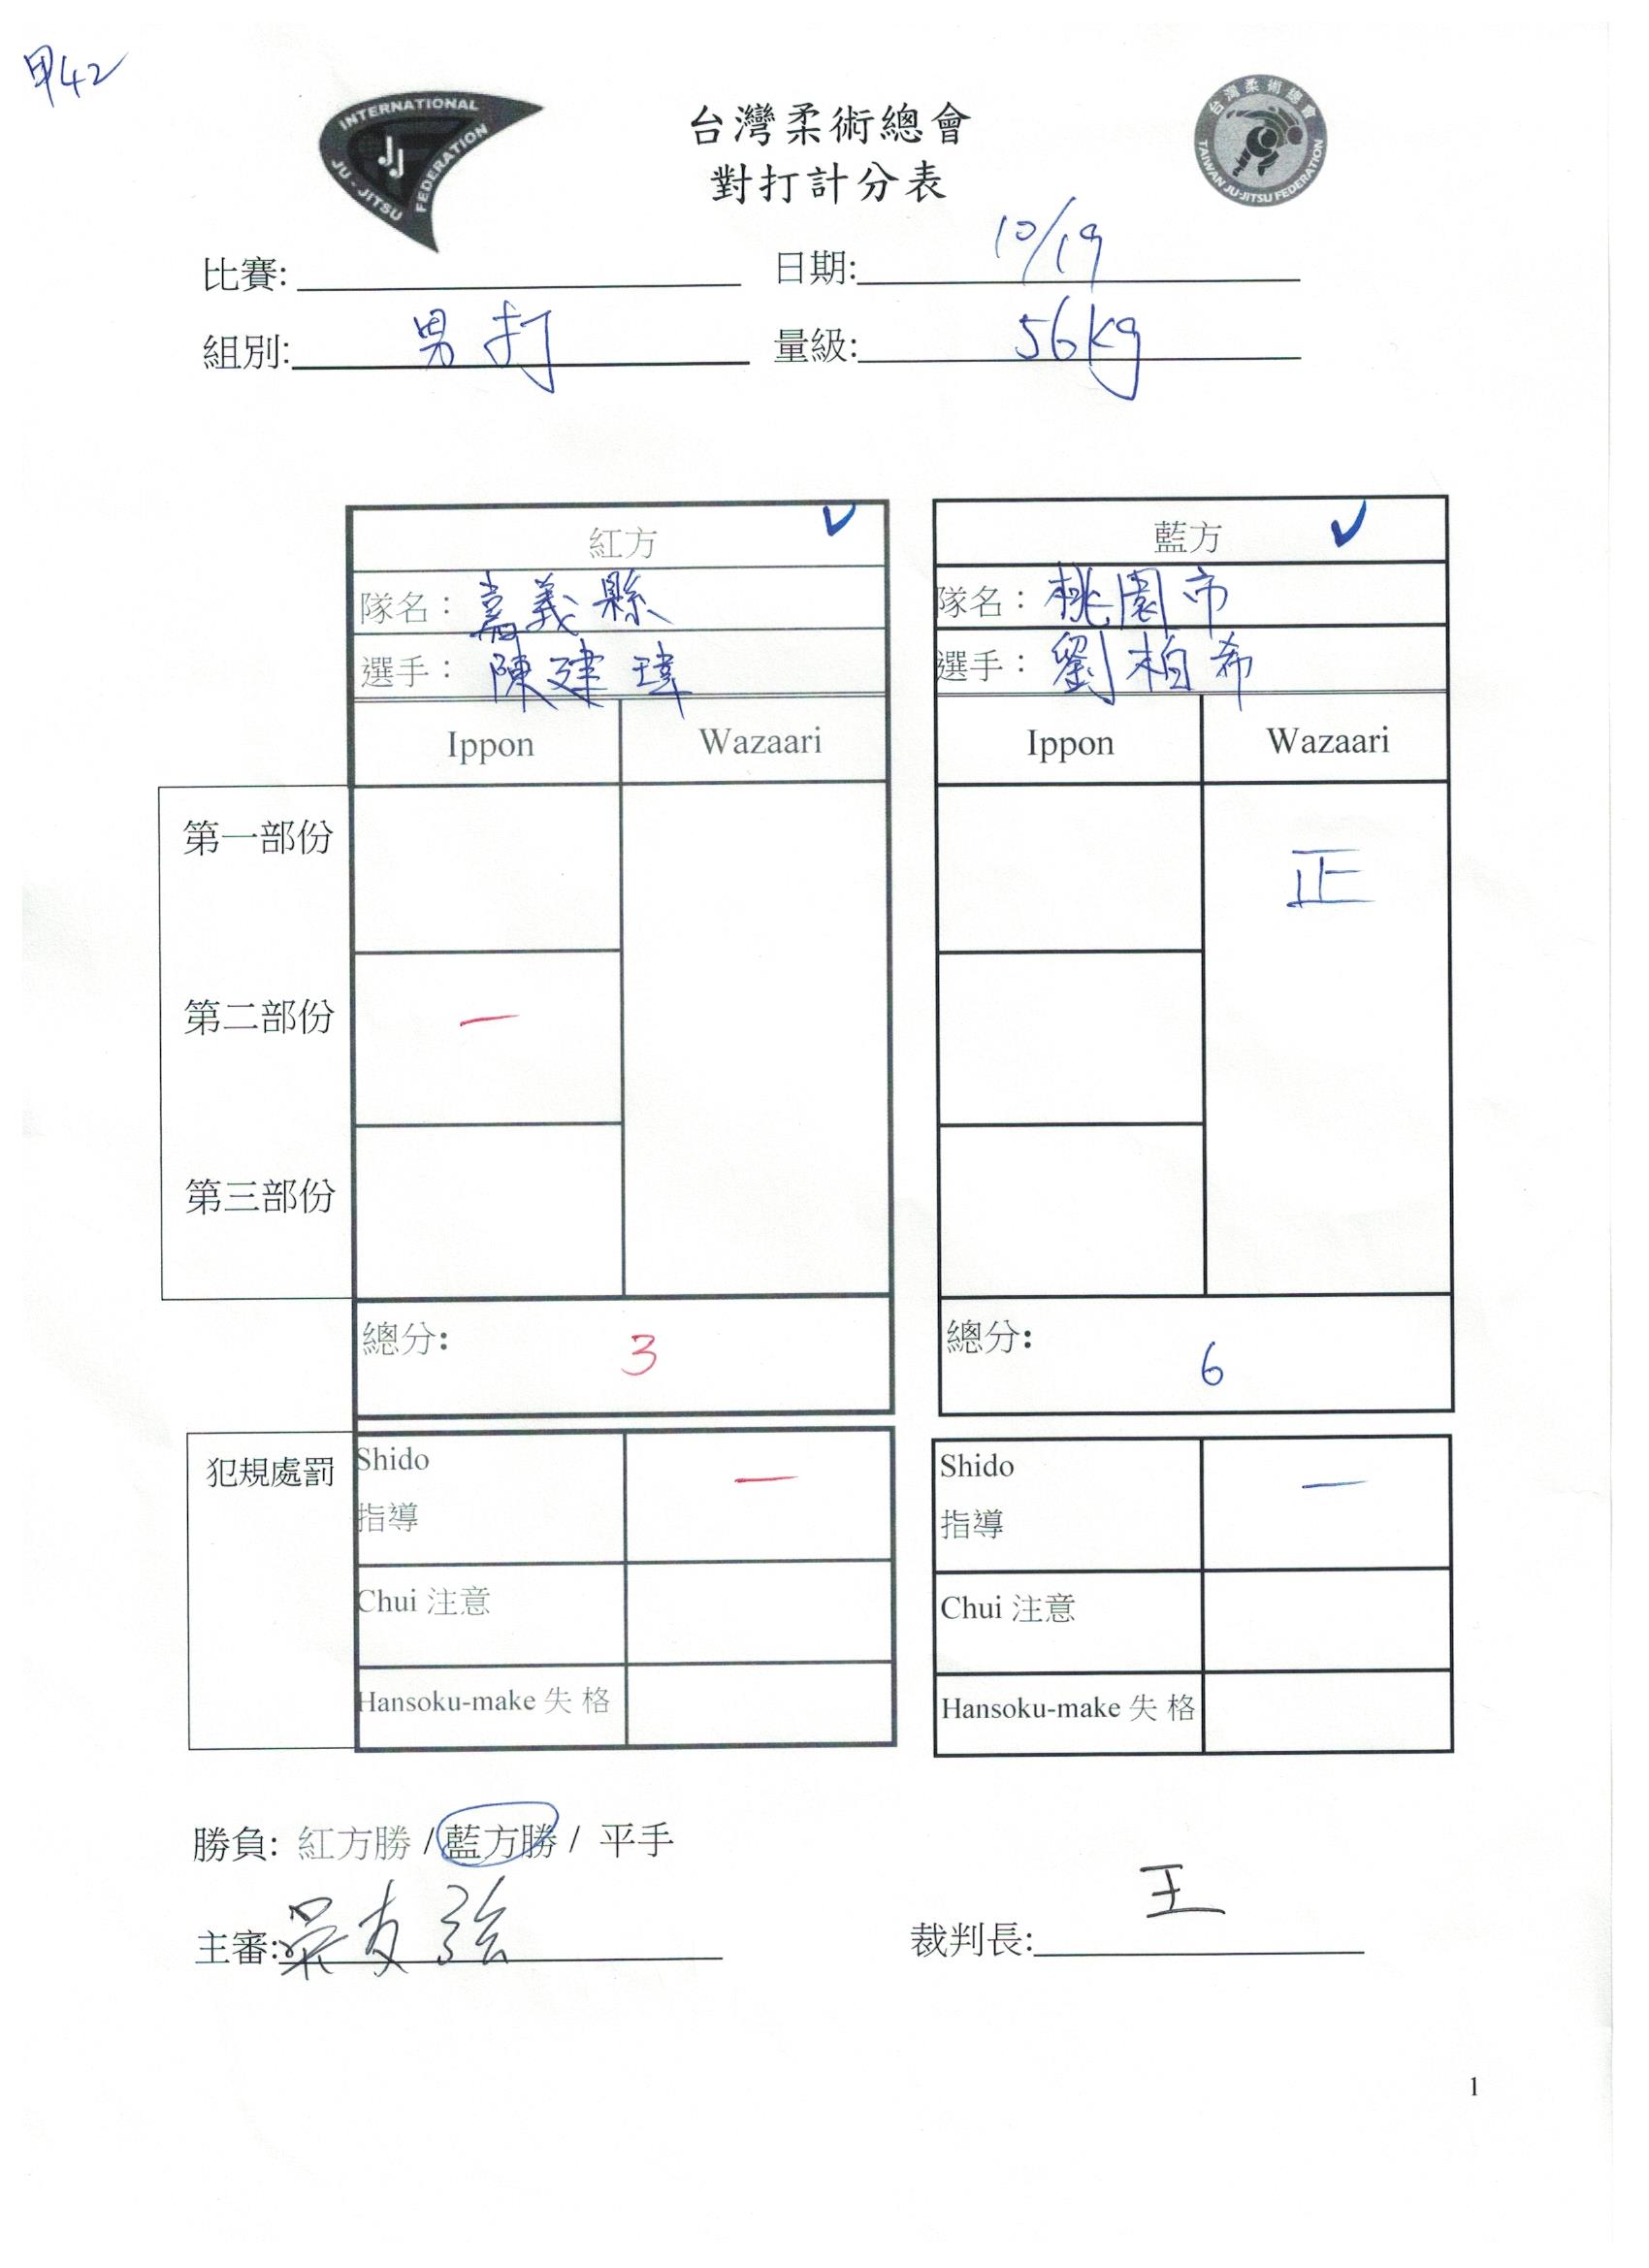 甲42
INTERNATIONAL JU-JITSU FEDERATION
JJ
台灣柔術總會
TAIWAN JU-JITSU FEDERATION
台灣柔術總會
對打計分表
比賽: 日期: 10/19
組別: 男打 量級: 56kg
紅方 ✓ 藍方 ✓
隊名： 嘉義縣 隊名： 桃園市
選手： 陳建瑋 選手： 劉柏希
Ippon Wazaari Ippon Wazaari
第一部份 正
第二部份 一
第三部份
總分: 3 總分: 6
犯規處罰 Shido 一 Shido 一
指導 指導
Chui 注意 Chui 注意
Hansoku-make 失格 Hansoku-make 失格
勝負: 紅方勝 / 藍方勝 / 平手
主審: 吳友強 裁判長: 王
1